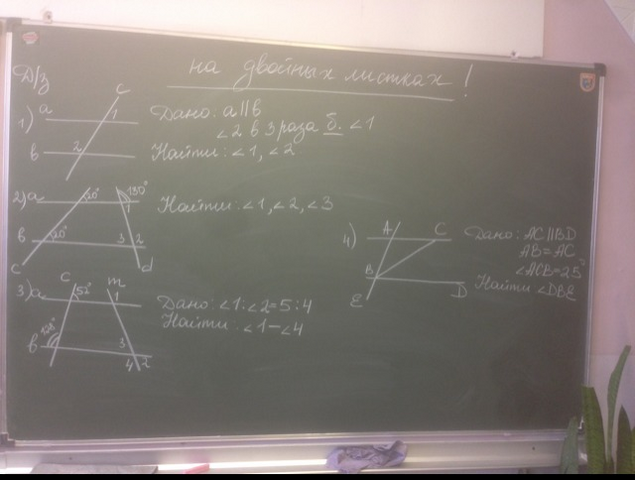 на двойных листках!
Д/з
1) a
c
1
b
2
Дано: a∥b
∠2 в 3 раза б. ∠1
Найти: ∠1, ∠2
2) a
1
b
3 2
c
d
Найти: ∠1, ∠2, ∠3
3) a
c
m
52°
1
b
3
4 2
Дано: ∠1:∠2=5:4
Найти: ∠1–∠4
4)
A
C
B
E
D
Дано: AC∥BD
AB=AC
∠ACB=25°
Найти ∠DBE